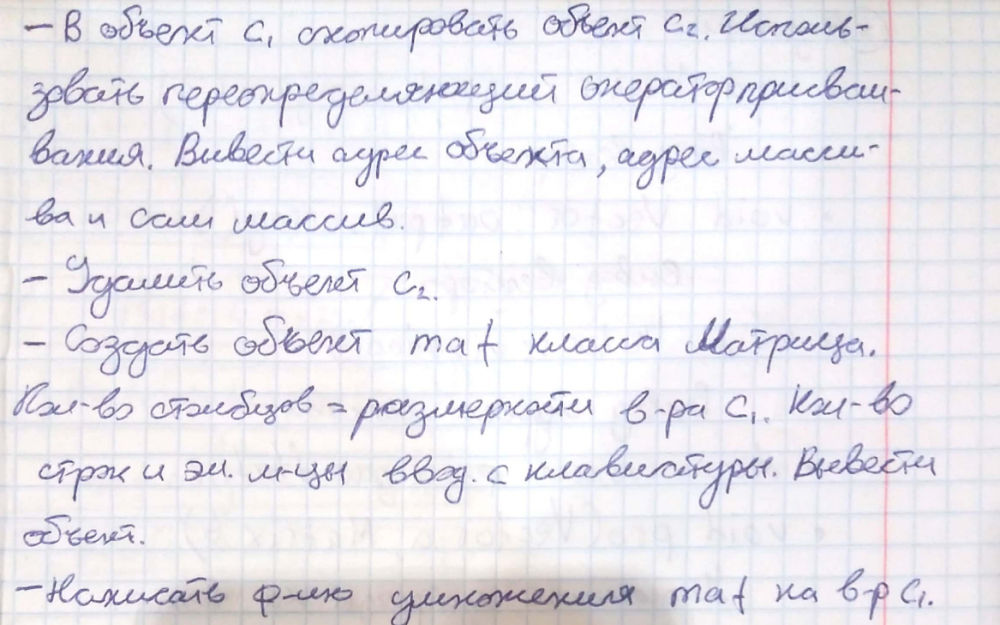 – В объект c₁ скопировать объект c₂. Исполь-
зовать переопределяющий оператор присваи-
вания. Вывести адрес объекта, адрес масси-
ва и сам массив.
– Удалить объект c₂.
– Создать объект mat класса Матрица.
Кол-во столбцов = размерности в-ра c₁. Кол-во
строк и эл. м-цы ввод. с клавиатуры. Вывести
объект.
– Написать ф-ию умножения mat на в-р c₁.